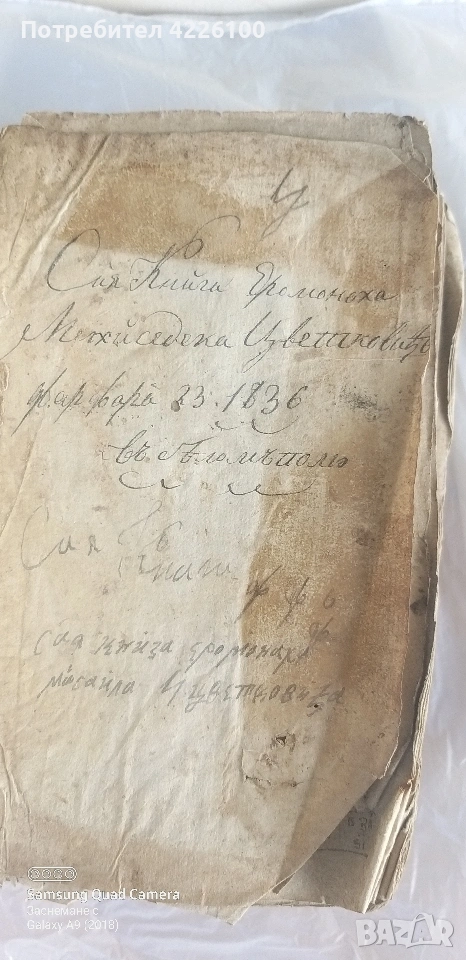 Потребител 4226100
Ц
Сия Книга Еромонаха
Мелхиседека Цветковића
фарвара 23. 1836
въ Бѣломъ полю
Сия
ф ф
сия книга еромонаха
Цветковића
Samsung Quad Camera
Заснемане с
Galaxy A9 (2018)
BAZAR